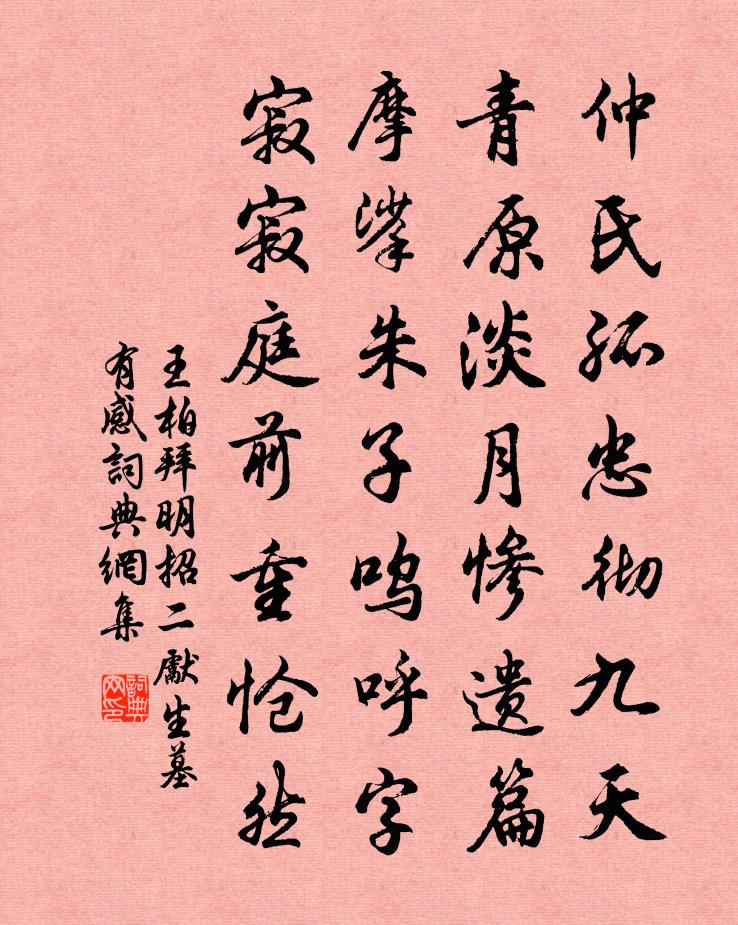 仲氏孤忠彻九天
青原淡月惨遗篇
摩挲朱子呜呼字
寂寂庭前重怆然
王柏拜明招二獻生墓
有感詞典網集
詞典网印